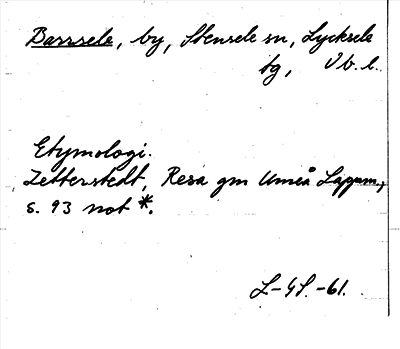 Barsele, by, Stensele sn, Lycksele
tg, Vb. l.
Etymologi.
Zetterstedt, Resa gm Umeå Lappm,
s. 93 not *.
L-GS. -61.